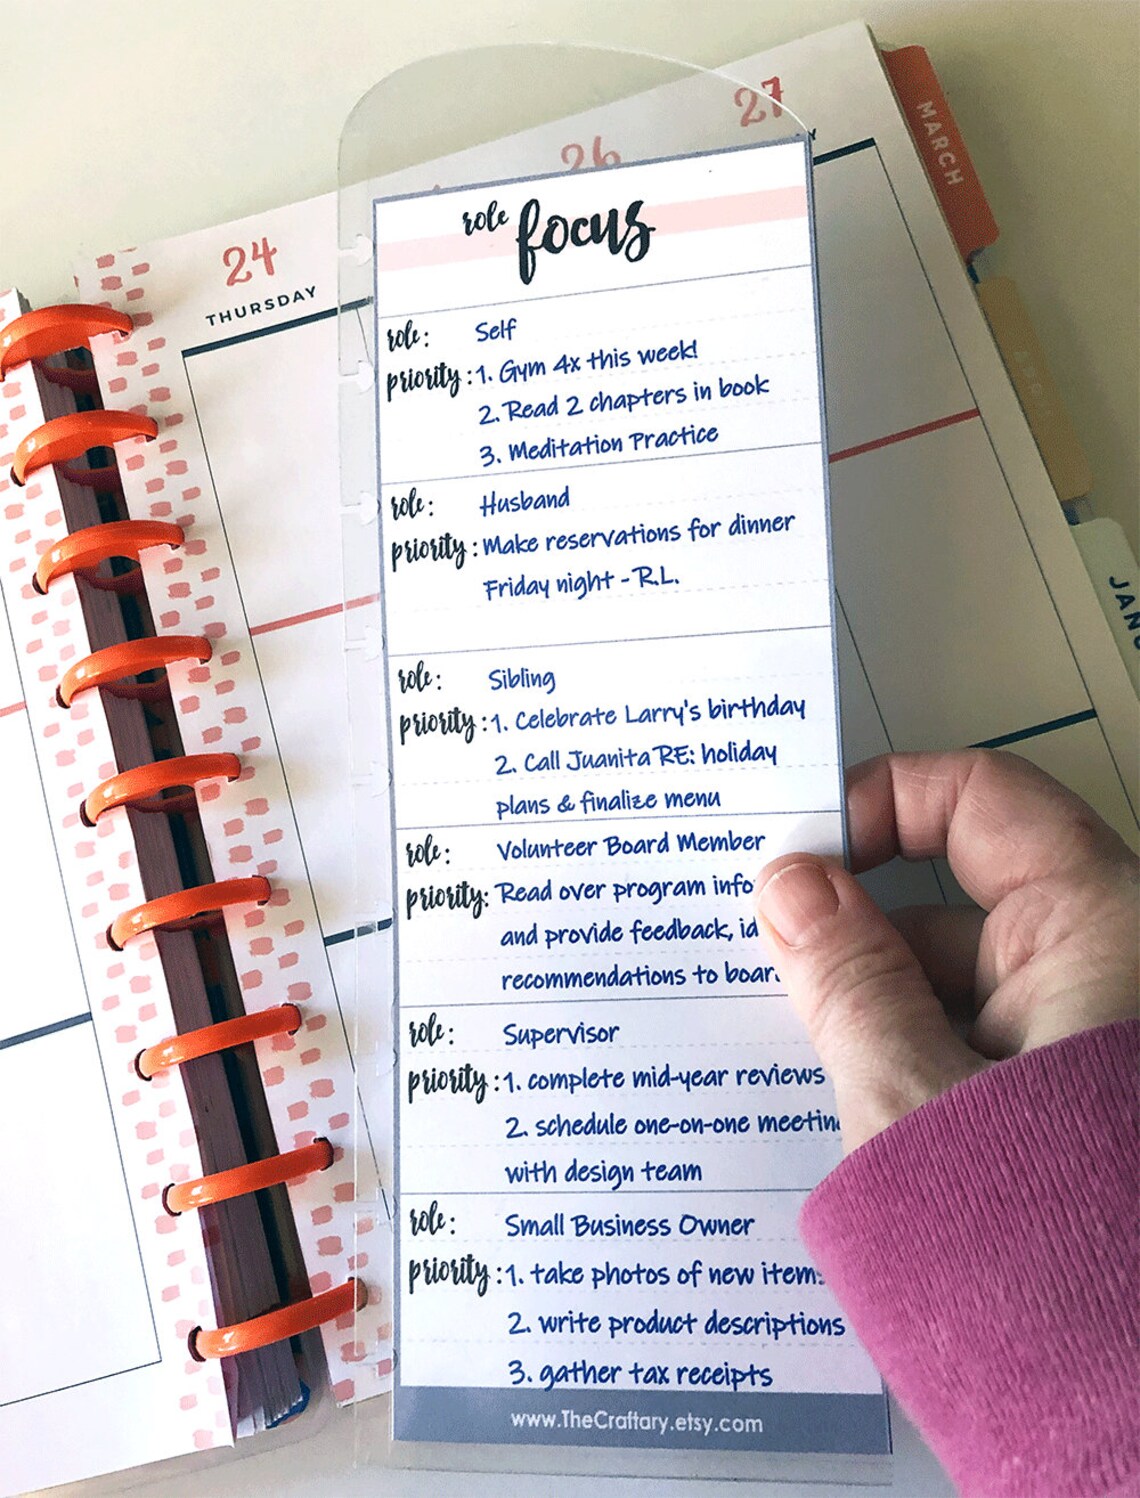 24
THURSDAY
26
27
MARCH
role focus
role: Self
priority: 1. Gym 4x this week!
2. Read 2 chapters in book
3. Meditation Practice
role: Husband
priority: Make reservations for dinner
Friday night - R.L.
role: Sibling
priority: 1. Celebrate Larry's birthday
2. Call Juanita RE: holiday
plans & finalize menu
role: Volunteer Board Member
priority: Read over program info
and provide feedback,
recommendations to
role: Supervisor
priority: 1. complete mid-year reviews
2. schedule one-on-one
with design team
role: Small Business Owner
priority: 1. take photos of new
2. write product descriptions
3. gather tax receipts
www.TheCraftary.etsy.com